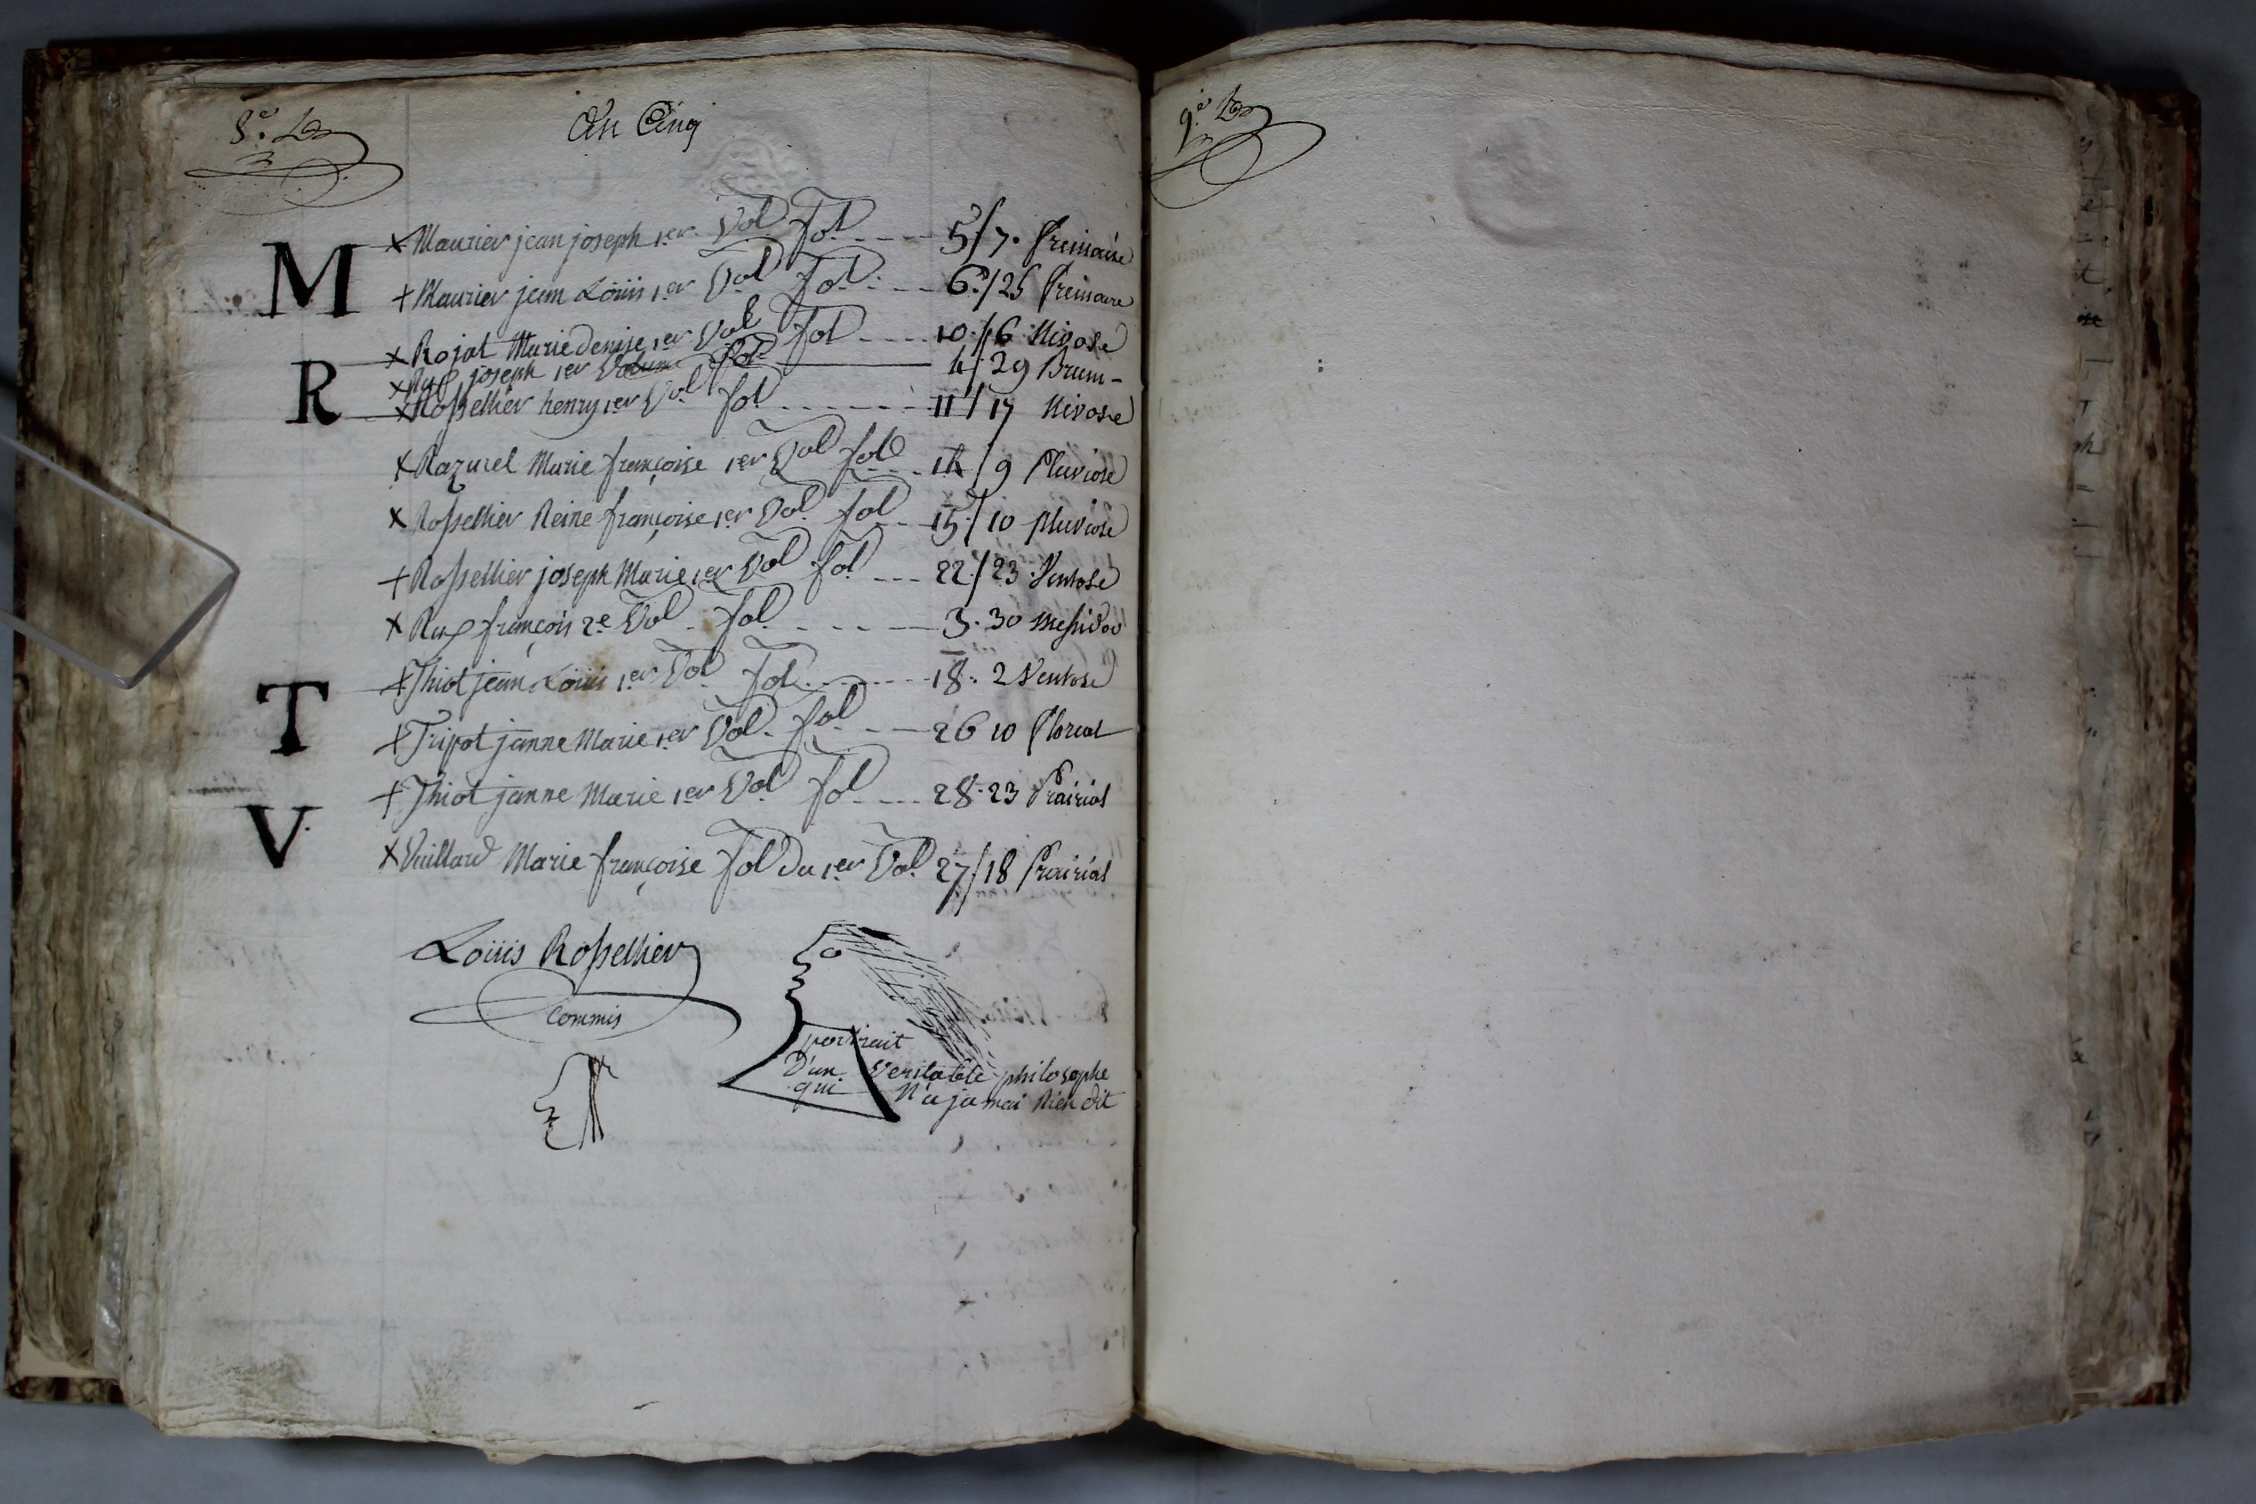 8.e
An Cinq
M
× Maurier jean joseph 1.er Vol Fol. 5/7. frimaire
+ Maurier jean Loüis 1.er Vol Fol. 6./25 frimaire
× Rojat Marie denise 1.er Vol Fol 10./6 Nivose
R
× Rux joseph 1er Volume fol. 4/29 Brum-
× Rossellier henry 1er Vol fol 11/17 Nivose
× Razurel Marie françoise 1er Vol fol. 14/9 Pluviose
× Rossellier Reine françoise 1.er Vol. fol 15./10 pluviose
+ Rossellier joseph Marie 1.er Vol fol. 22./23 Ventose
× Rux françois 2.e Vol. fol. 3. 30 Messidor
T
+ Thiot jean Loüis 1.er Vol Fol. 18. 2 Ventose
+ Tripot janne Marie 1.er Vol. fol. 26 10 floreal
+ Thiot janne Marie 1.er Vol Fol 28. 23 Prairial
V.
× Vuillard Marie françoise fol Du 1.er Vol. 27/18 Prairial
Loüis Rossellier
Commis
portrait
D'un Veritable philosophe
qui N'a jamai Rien dit
9.e